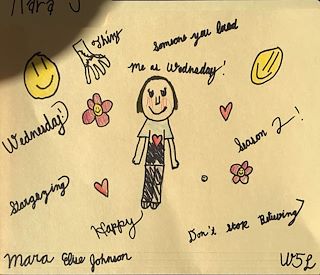 Mara J
Thing
Someone you loved
Me as Wednesday!
Wednesday!
Season 2!
Stargazing
Happy
Don't Stop Believing
Mara Elise Johnson
W5L